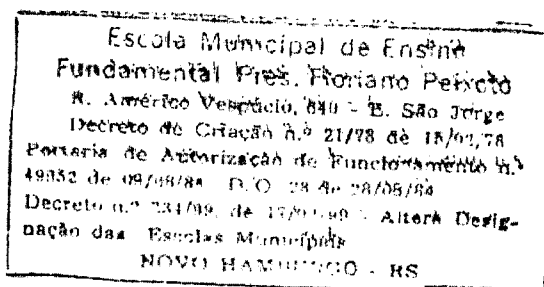 Escola Municipal de Ensino
Fundamental Pres. Floriano Peixoto
R. Américo Vespúcio, 840 - B. São Jorge
Decreto de Criação n.º 21/78 de 15/02/78
Portaria de Autorização de Funcionamento n.º
49352 de 09/08/84 D.O. 28 de 28/08/84
Decreto n.º 234/99, de - Altera Desig-
nação das Escolas Municipais
NOVO HAMBURGO - RS